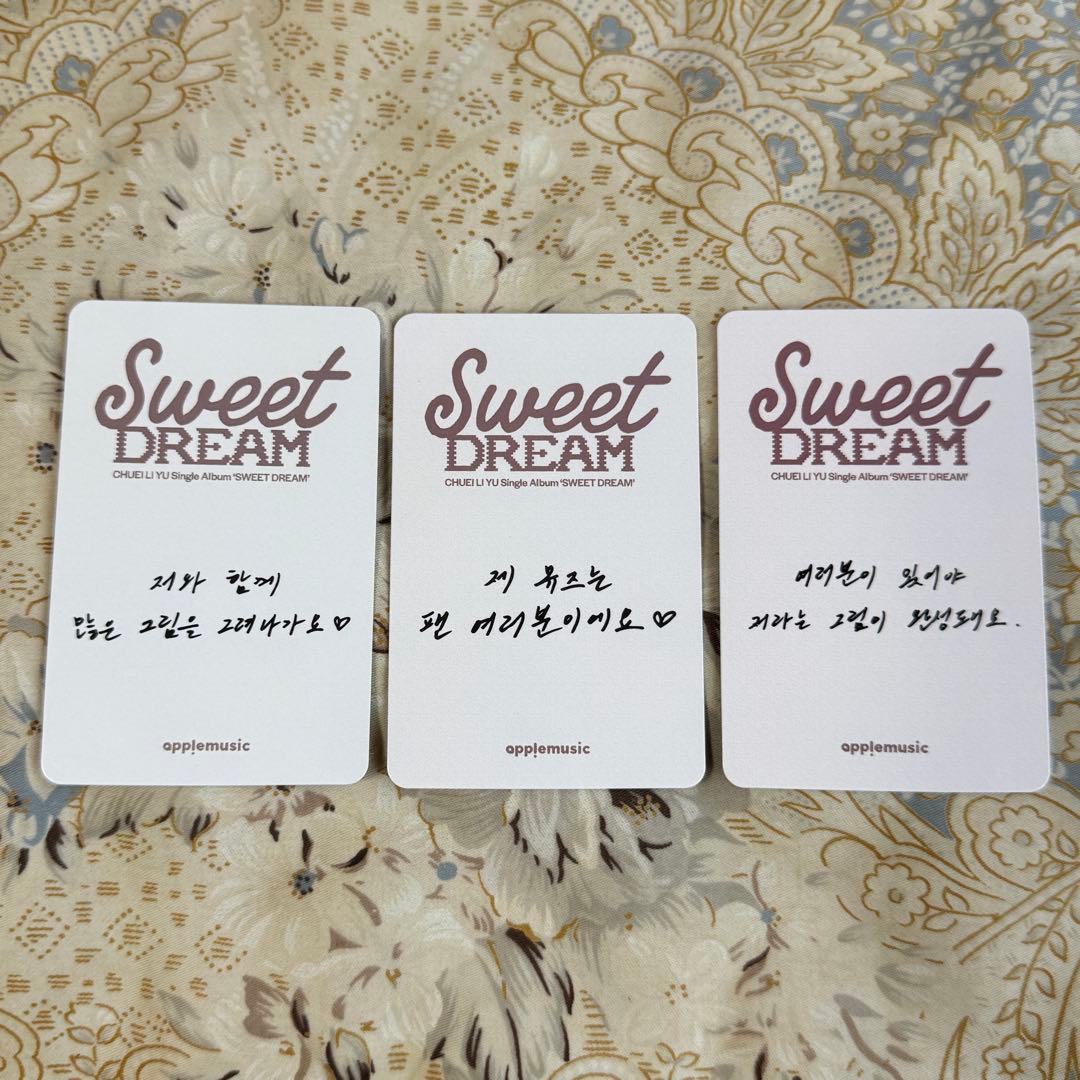 Sweet
DREAM
CHUEI LI YU Single Album 'SWEET DREAM'
저와 함께
많은 그림을 그려나가요♡
applemusic
Sweet
DREAM
CHUEI LI YU Single Album 'SWEET DREAM'
제 뮤즈는
팬 여러분이에요♡
applemusic
Sweet
DREAM
CHUEI LI YU Single Album 'SWEET DREAM'
여러분이 있어야
저라는 그림이 완성돼요.
applemusic